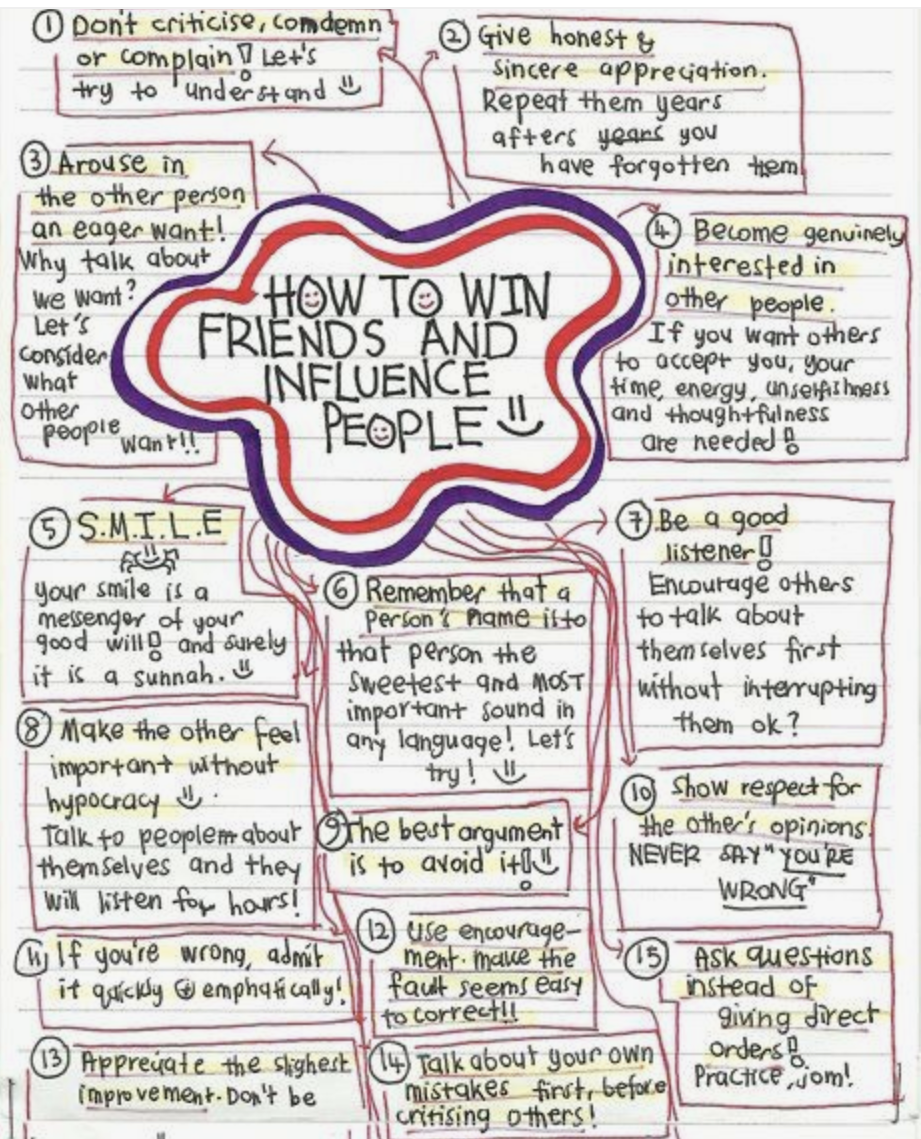 ① Don't criticise, comdemn
or complain! Let's
try to understand
② Give honest &
sincere appreciation.
Repeat them years
afters years you
have forgotten them
③ Arouse in
the other person
an eager want!
Why talk about
we want?
Let's
consider
what
other
people want!!
HOW TO WIN
FRIENDS AND
INFLUENCE
PEOPLE
④ Become genuinely
interested in
other people.
If you want others
to accept you, your
time, energy, unselfishness
and thoughtfulness
are needed!
⑤ S.M.I.L.E
your smile is a
messenger of your
good will! and surely
it is a sunnah.
⑥ Remember that a
person's name is to
that person the
sweetest and MOST
important sound in
any language! Let's
try!
⑦ Be a good
listener!
Encourage others
to talk about
themselves first
without interrupting
them ok?
⑧ Make the other feel
important without
hypocracy
Talk to people about
themselves and they
will listen for hours!
⑨ The best argument
is to avoid it!
⑩ Show respect for
the other's opinions.
NEVER SAY "YOU'RE
WRONG"
⑪ If you're wrong, admit
it quickly & emphatically!
⑫ Use encourage-
ment. make the
fault seems easy
to correct!!
⑬ Appreciate the slighest
improvement. Don't be
⑭ Talk about your own
mistakes first, before
critising others!
⑮ Ask questions
instead of
giving direct
orders!
Practice, jom!